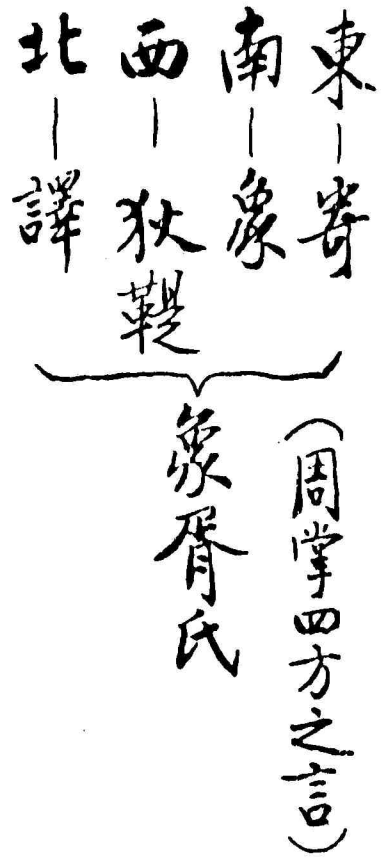 東—寄
南—象
西—狄鞮
北—譯
象胥氏
（周掌四方之言）